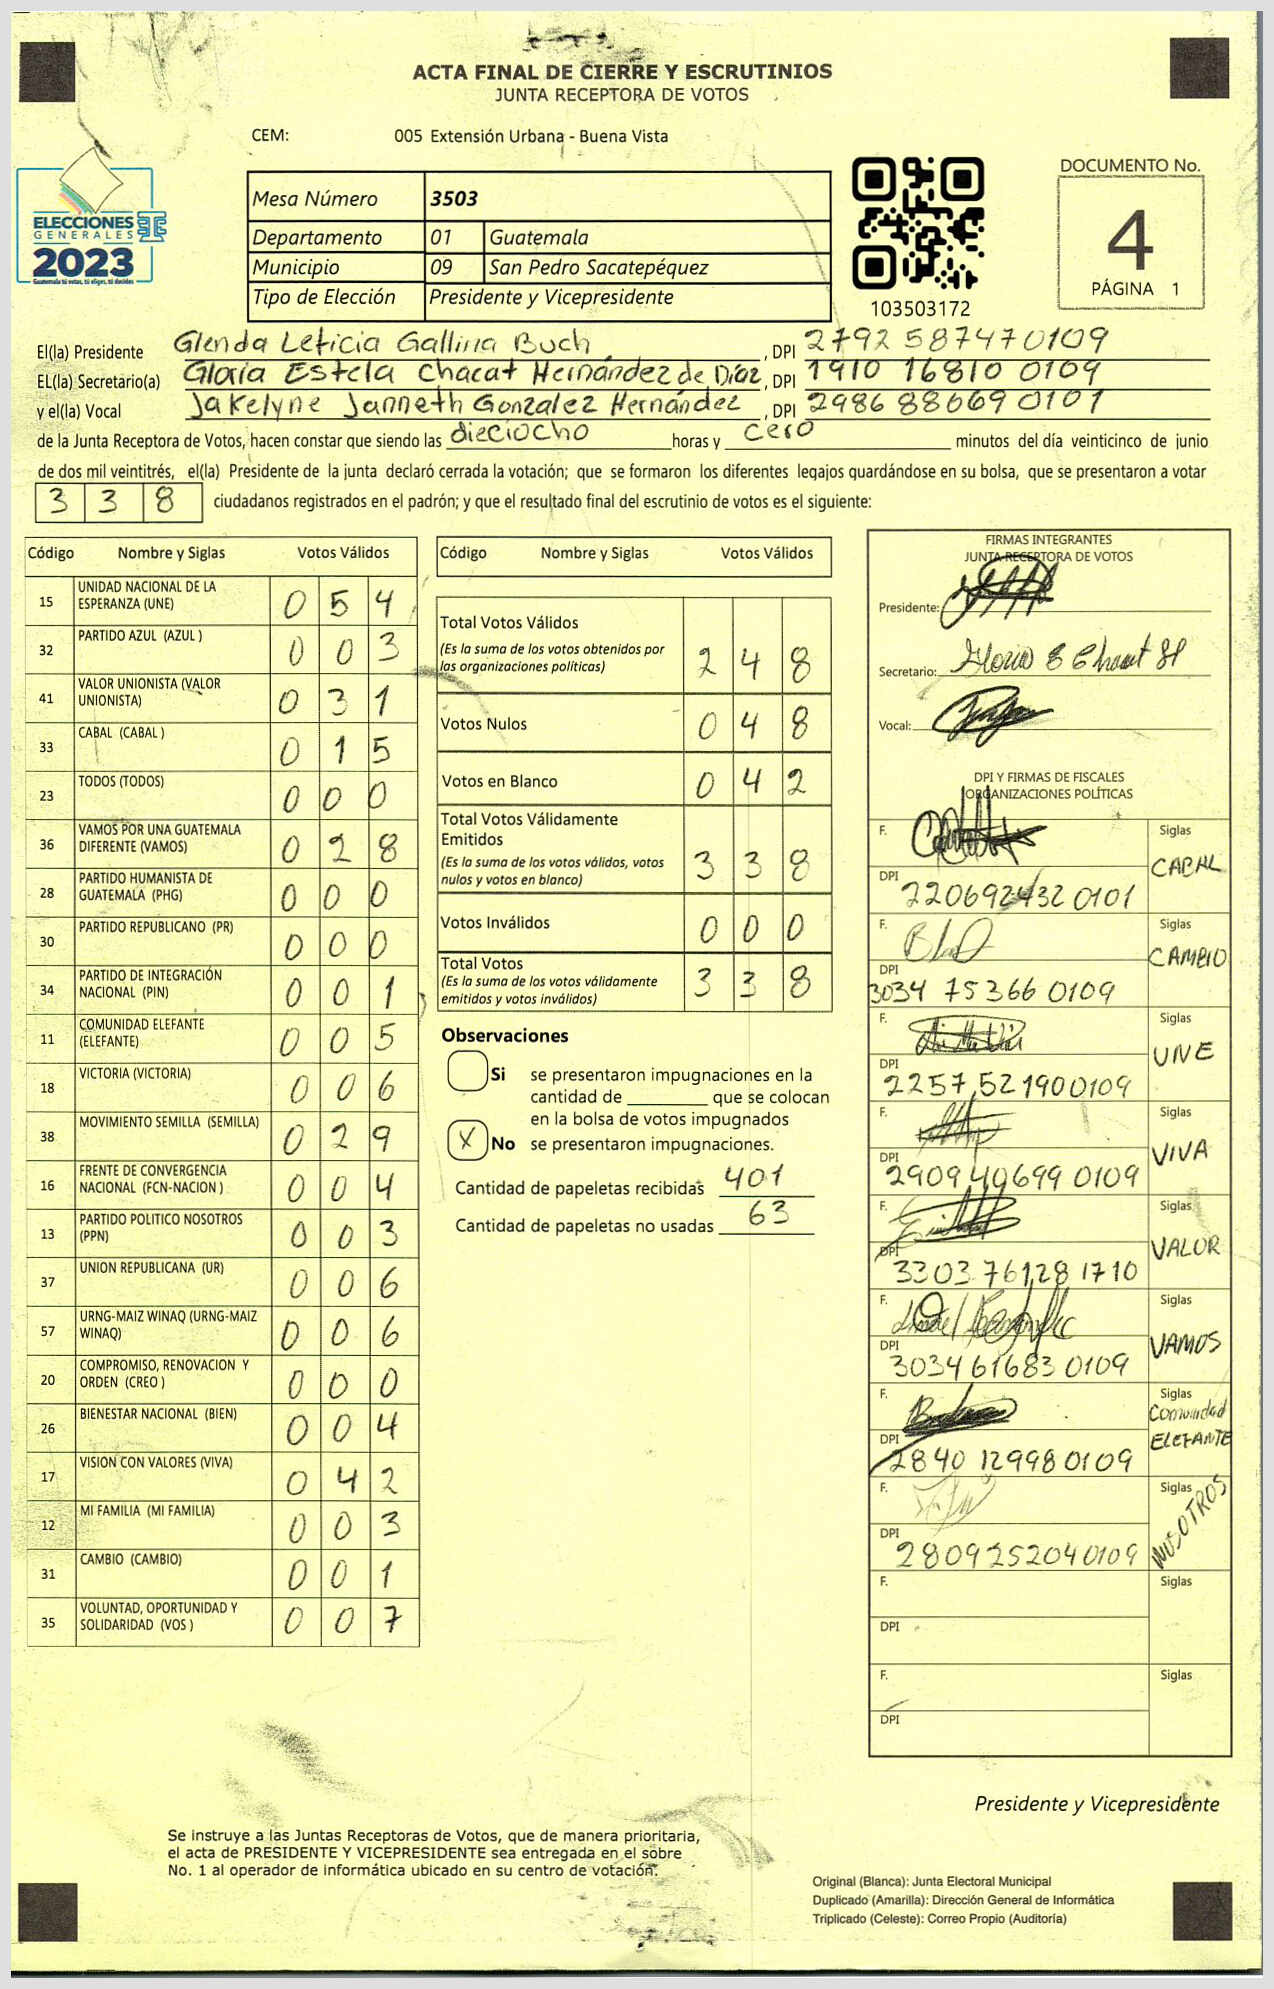 ACTA FINAL DE CIERRE Y ESCRUTINIOS
JUNTA RECEPTORA DE VOTOS
CEM: 005 Extensión Urbana - Buena Vista
ELECCIONES
GENERALES
2023
Guatemala tú votas, tú eliges, tú decides
Mesa Número 3503
Departamento 01 Guatemala
Municipio 09 San Pedro Sacatepéquez
Tipo de Elección Presidente y Vicepresidente
103503172
DOCUMENTO No.
4
PÁGINA 1
El(la) Presidente Glenda Leticia Gallina Buch, DPI 2792 58747 0109
EL(la) Secretario(a) Gloria Estela Chacat Hernández de Díaz, DPI 1910 16810 0109
y el(la) Vocal Jakelyne Janneth Gonzalez Hernández, DPI 2986 88669 0101
de la Junta Receptora de Votos, hacen constar que siendo las dieciocho horas y cero minutos del día veinticinco de junio
de dos mil veintitrés, el(la) Presidente de la junta declaró cerrada la votación; que se formaron los diferentes legajos quardándose en su bolsa, que se presentaron a votar
338 ciudadanos registrados en el padrón; y que el resultado final del escrutinio de votos es el siguiente:
Código Nombre y Siglas Votos Válidos
15 UNIDAD NACIONAL DE LA ESPERANZA (UNE) 054
32 PARTIDO AZUL (AZUL ) 003
41 VALOR UNIONISTA (VALOR UNIONISTA) 031
33 CABAL (CABAL ) 015
23 TODOS (TODOS) 000
36 VAMOS POR UNA GUATEMALA DIFERENTE (VAMOS) 028
28 PARTIDO HUMANISTA DE GUATEMALA (PHG) 000
30 PARTIDO REPUBLICANO (PR) 000
34 PARTIDO DE INTEGRACIÓN NACIONAL (PIN) 001
11 COMUNIDAD ELEFANTE (ELEFANTE) 005
18 VICTORIA (VICTORIA) 006
38 MOVIMIENTO SEMILLA (SEMILLA) 029
16 FRENTE DE CONVERGENCIA NACIONAL (FCN-NACION ) 004
13 PARTIDO POLITICO NOSOTROS (PPN) 003
37 UNION REPUBLICANA (UR) 006
57 URNG-MAIZ WINAQ (URNG-MAIZ WINAQ) 006
20 COMPROMISO, RENOVACION Y ORDEN (CREO ) 000
26 BIENESTAR NACIONAL (BIEN) 004
17 VISION CON VALORES (VIVA) 042
12 MI FAMILIA (MI FAMILIA) 003
31 CAMBIO (CAMBIO) 001
35 VOLUNTAD, OPORTUNIDAD Y SOLIDARIDAD (VOS ) 007
Código Nombre y Siglas Votos Válidos
Total Votos Válidos 248
(Es la suma de los votos obtenidos por
las organizaciones políticas)
Votos Nulos 048
Votos en Blanco 042
Total Votos Válidamente
Emitidos 338
(Es la suma de los votos válidos, votos
nulos y votos en blanco)
Votos Inválidos 000
Total Votos 338
(Es la suma de los votos válidamente
emitidos y votos inválidos)
Observaciones
Si se presentaron impugnaciones en la
cantidad de ________ que se colocan
en la bolsa de votos impugnados
X No se presentaron impugnaciones.
Cantidad de papeletas recibidas 401
Cantidad de papeletas no usadas 63
FIRMAS INTEGRANTES
JUNTA RECEPTORA DE VOTOS
Presidente:
Secretario:
Vocal:
DPI Y FIRMAS DE FISCALES
ORGANIZACIONES POLÍTICAS
F. Siglas CABAL
DPI 220692432 0101
F. Siglas CAMBIO
DPI 3034 75366 0109
F. Siglas UNE
DPI 2257 52190 0109
F. Siglas VIVA
DPI 2909 40699 0109
F. Siglas VALOR
DPI 3303 76128 1710
F. Siglas VAMOS
DPI 3034 61683 0109
F. Siglas Comunidad ELEFANTE
DPI 2840 12998 0109
F. Siglas NOSOTROS
DPI 2809252040109
F. Siglas
DPI
F. Siglas
DPI
Presidente y Vicepresidente
Se instruye a las Juntas Receptoras de Votos, que de manera prioritaria,
el acta de PRESIDENTE Y VICEPRESIDENTE sea entregada en el sobre
No. 1 al operador de informática ubicado en su centro de votación.
Original (Blanca): Junta Electoral Municipal
Duplicado (Amarilla): Dirección General de Informática
Triplicado (Celeste): Correo Propio (Auditoría)